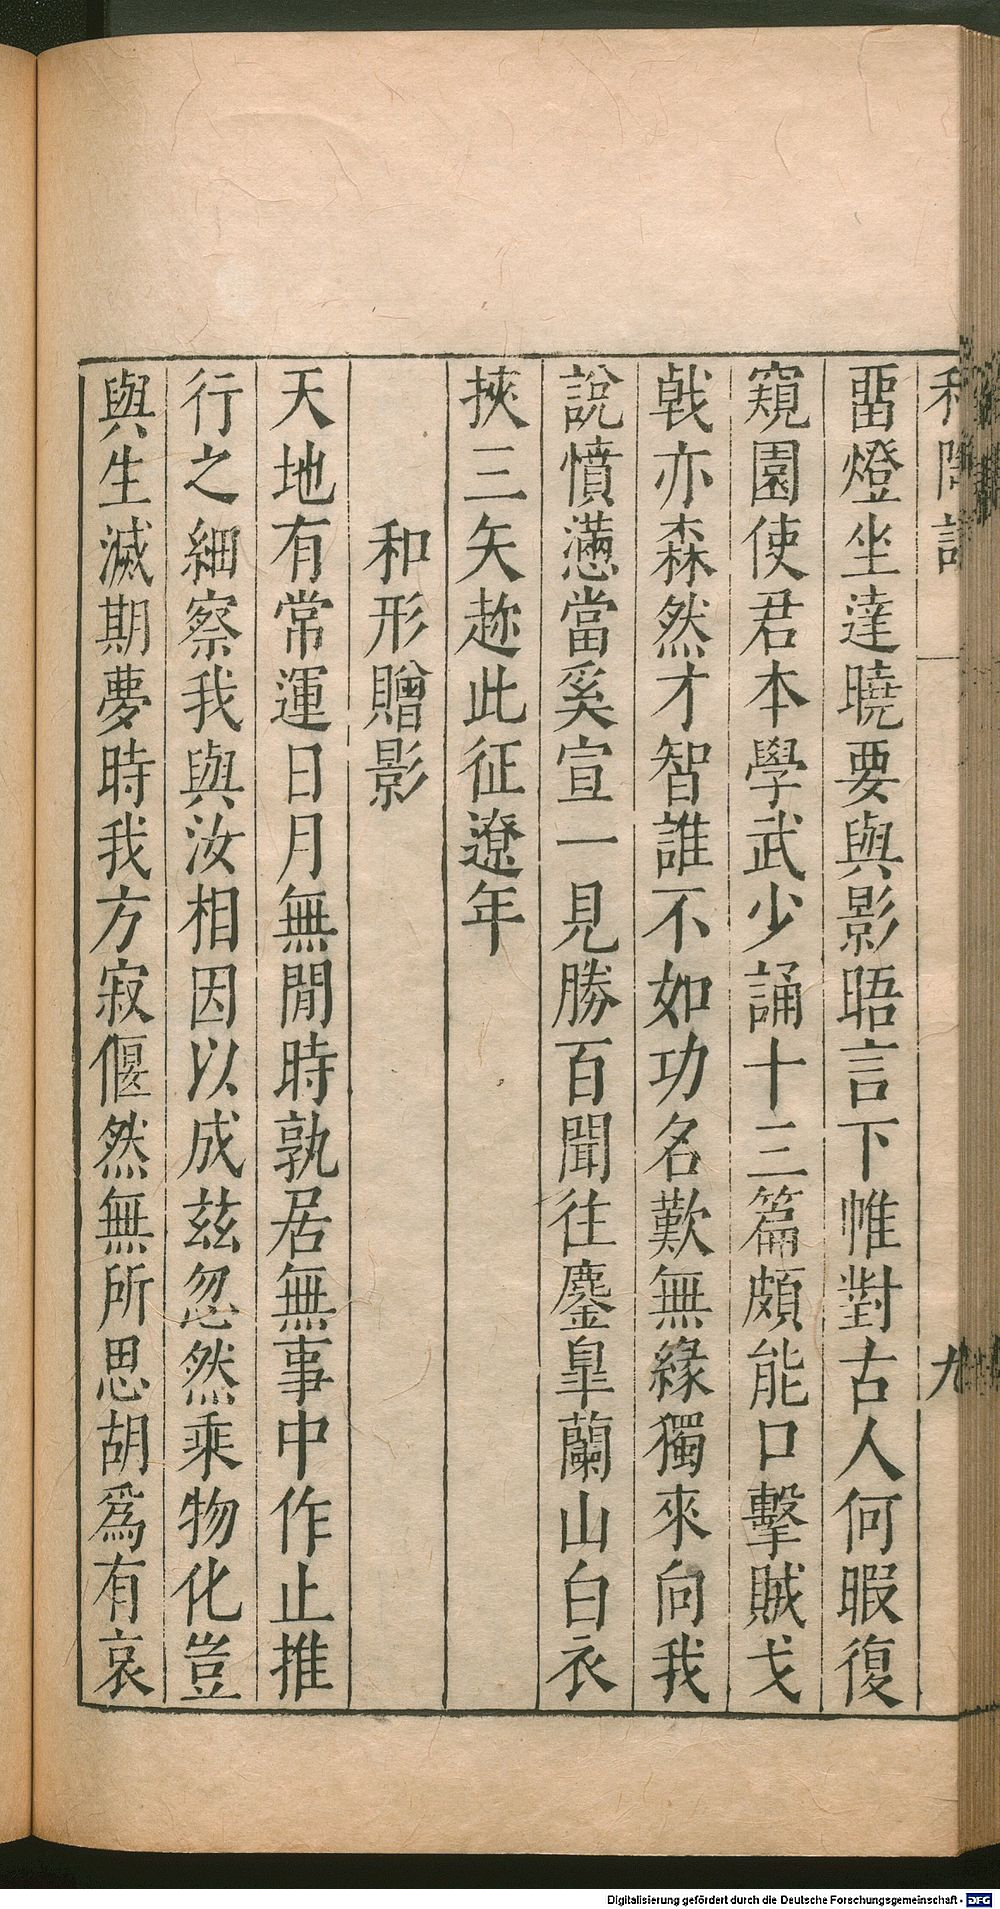 和陶詩
九
畱燈坐達曉要與影晤言下帷對古人何暇復
窺園使君本學武少誦十三篇頗能口擊賊戈
戟亦森然才智誰不如功名歎無緣獨來向我
說憤懣當奚宣一見勝百聞往鏖臯蘭山白衣
挾三矢趂此征遼年
和形贈影
天地有常運日月無閒時孰居無事中作止推
行之細察我與汝相因以成茲忽然乘物化豈
與生滅期夢時我方寂偃然無所思胡爲有哀
Digitalisierung gefördert durch die Deutsche Forschungsgemeinschaft - DFG